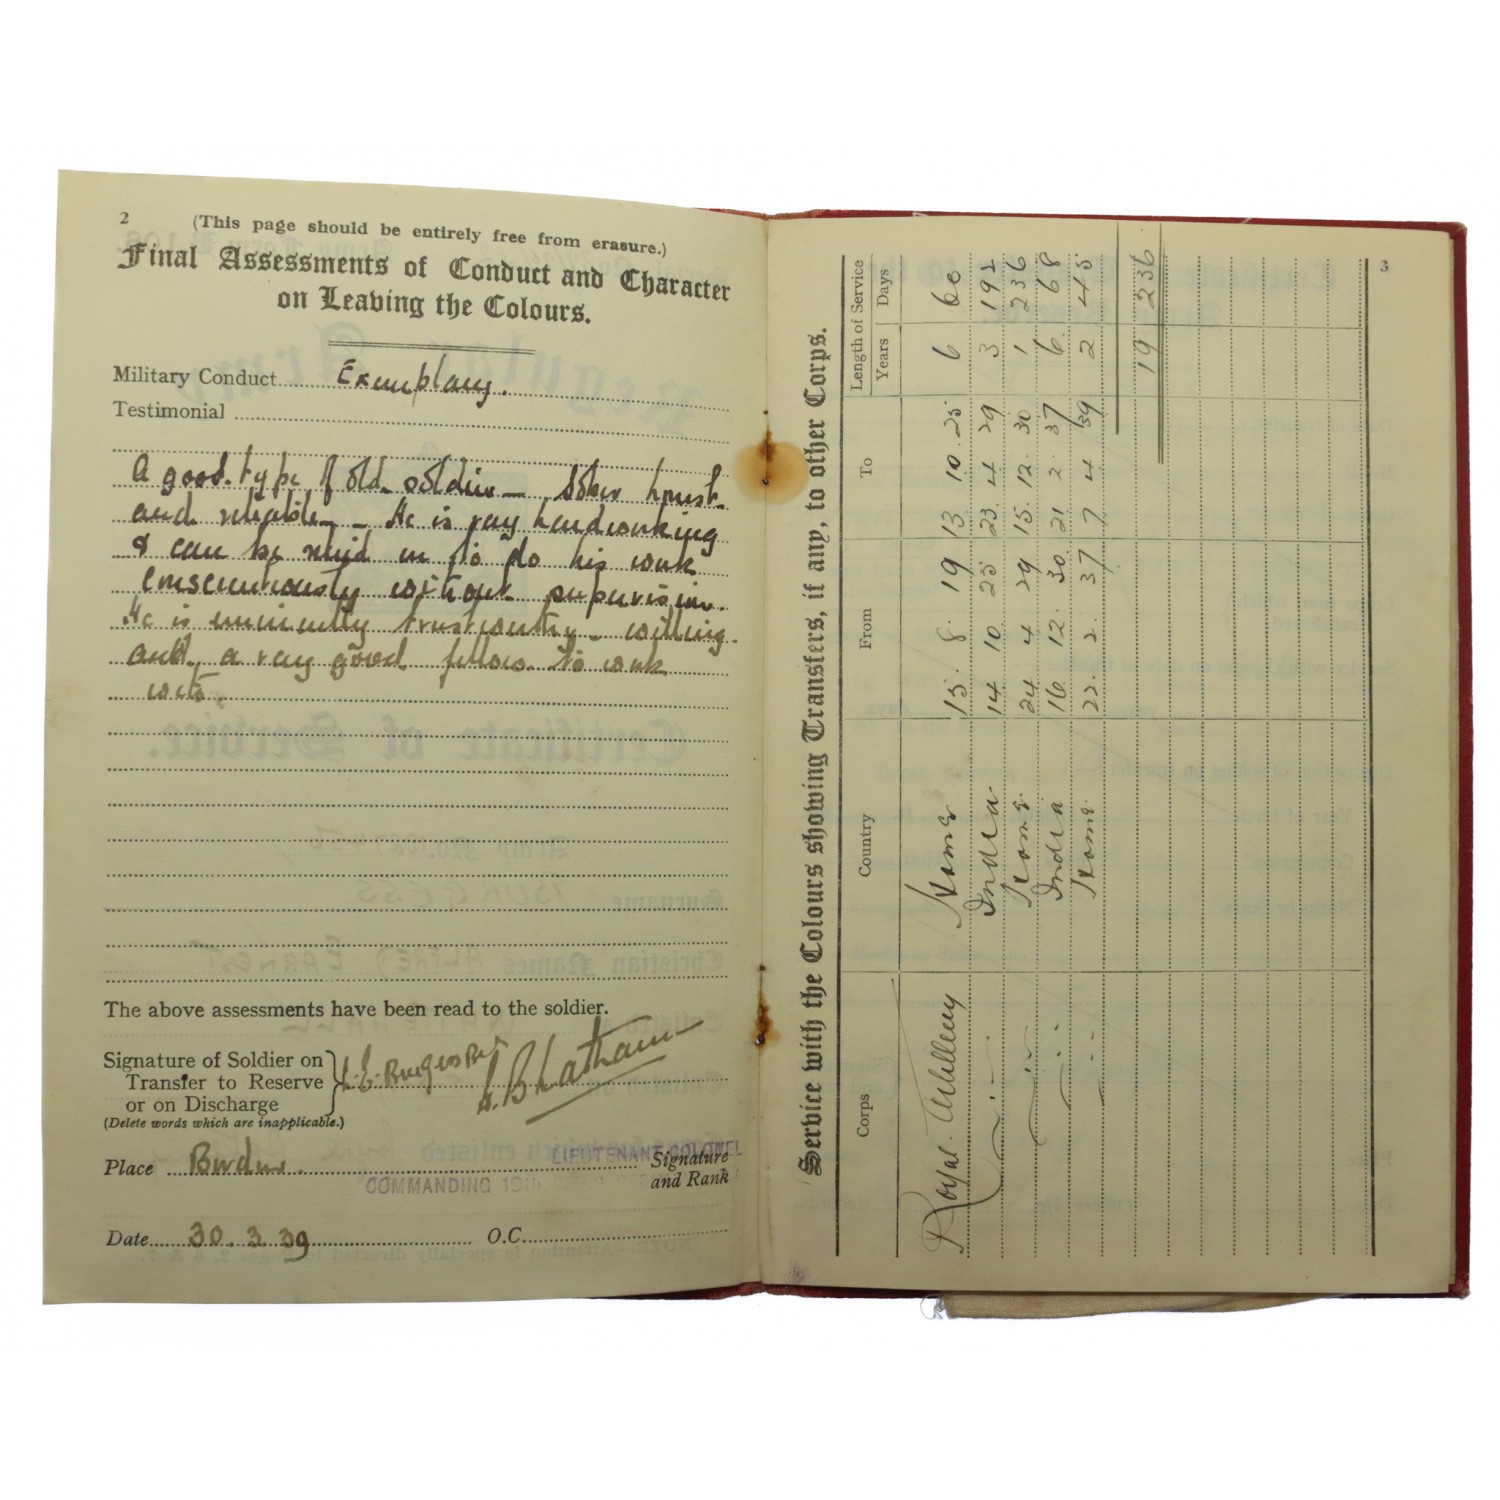 2
(This page should be entirely free from erasure.)
Final Assessments of Conduct and Character
on Leaving the Colours.
Military Conduct Exemplary.
Testimonial
A good type of old soldier – sober honest
and reliable – He is very hardworking
& can be relied on to do his work
conscientiously without supervision.
He is eminently trustworthy – willing
and a very good fellow to work
with.
The above assessments have been read to the soldier.
Signature of Soldier on
Transfer to Reserve
or on Discharge
A. E. Burgess
(Delete words which are inapplicable.)
Place Bordon.
LIEUTENANT-COLONEL
Signature
and Rank
COMMANDING
Date 30.3.39 O.C.
3
Service with the Colours showing Transfers, if any, to other Corps.
Corps Country From To Length of Service
Years Days
Royal Artillery Home 15. 8. 19 13 10. 25 6 60
India 14 10. 25 23. 4 29 3 192
Home 24 4 29 15. 12. 30 1 236
India 16. 12. 30 21 2. 37 6. 68
Home 22. 2. 37 7 4 39 2 45
19 236